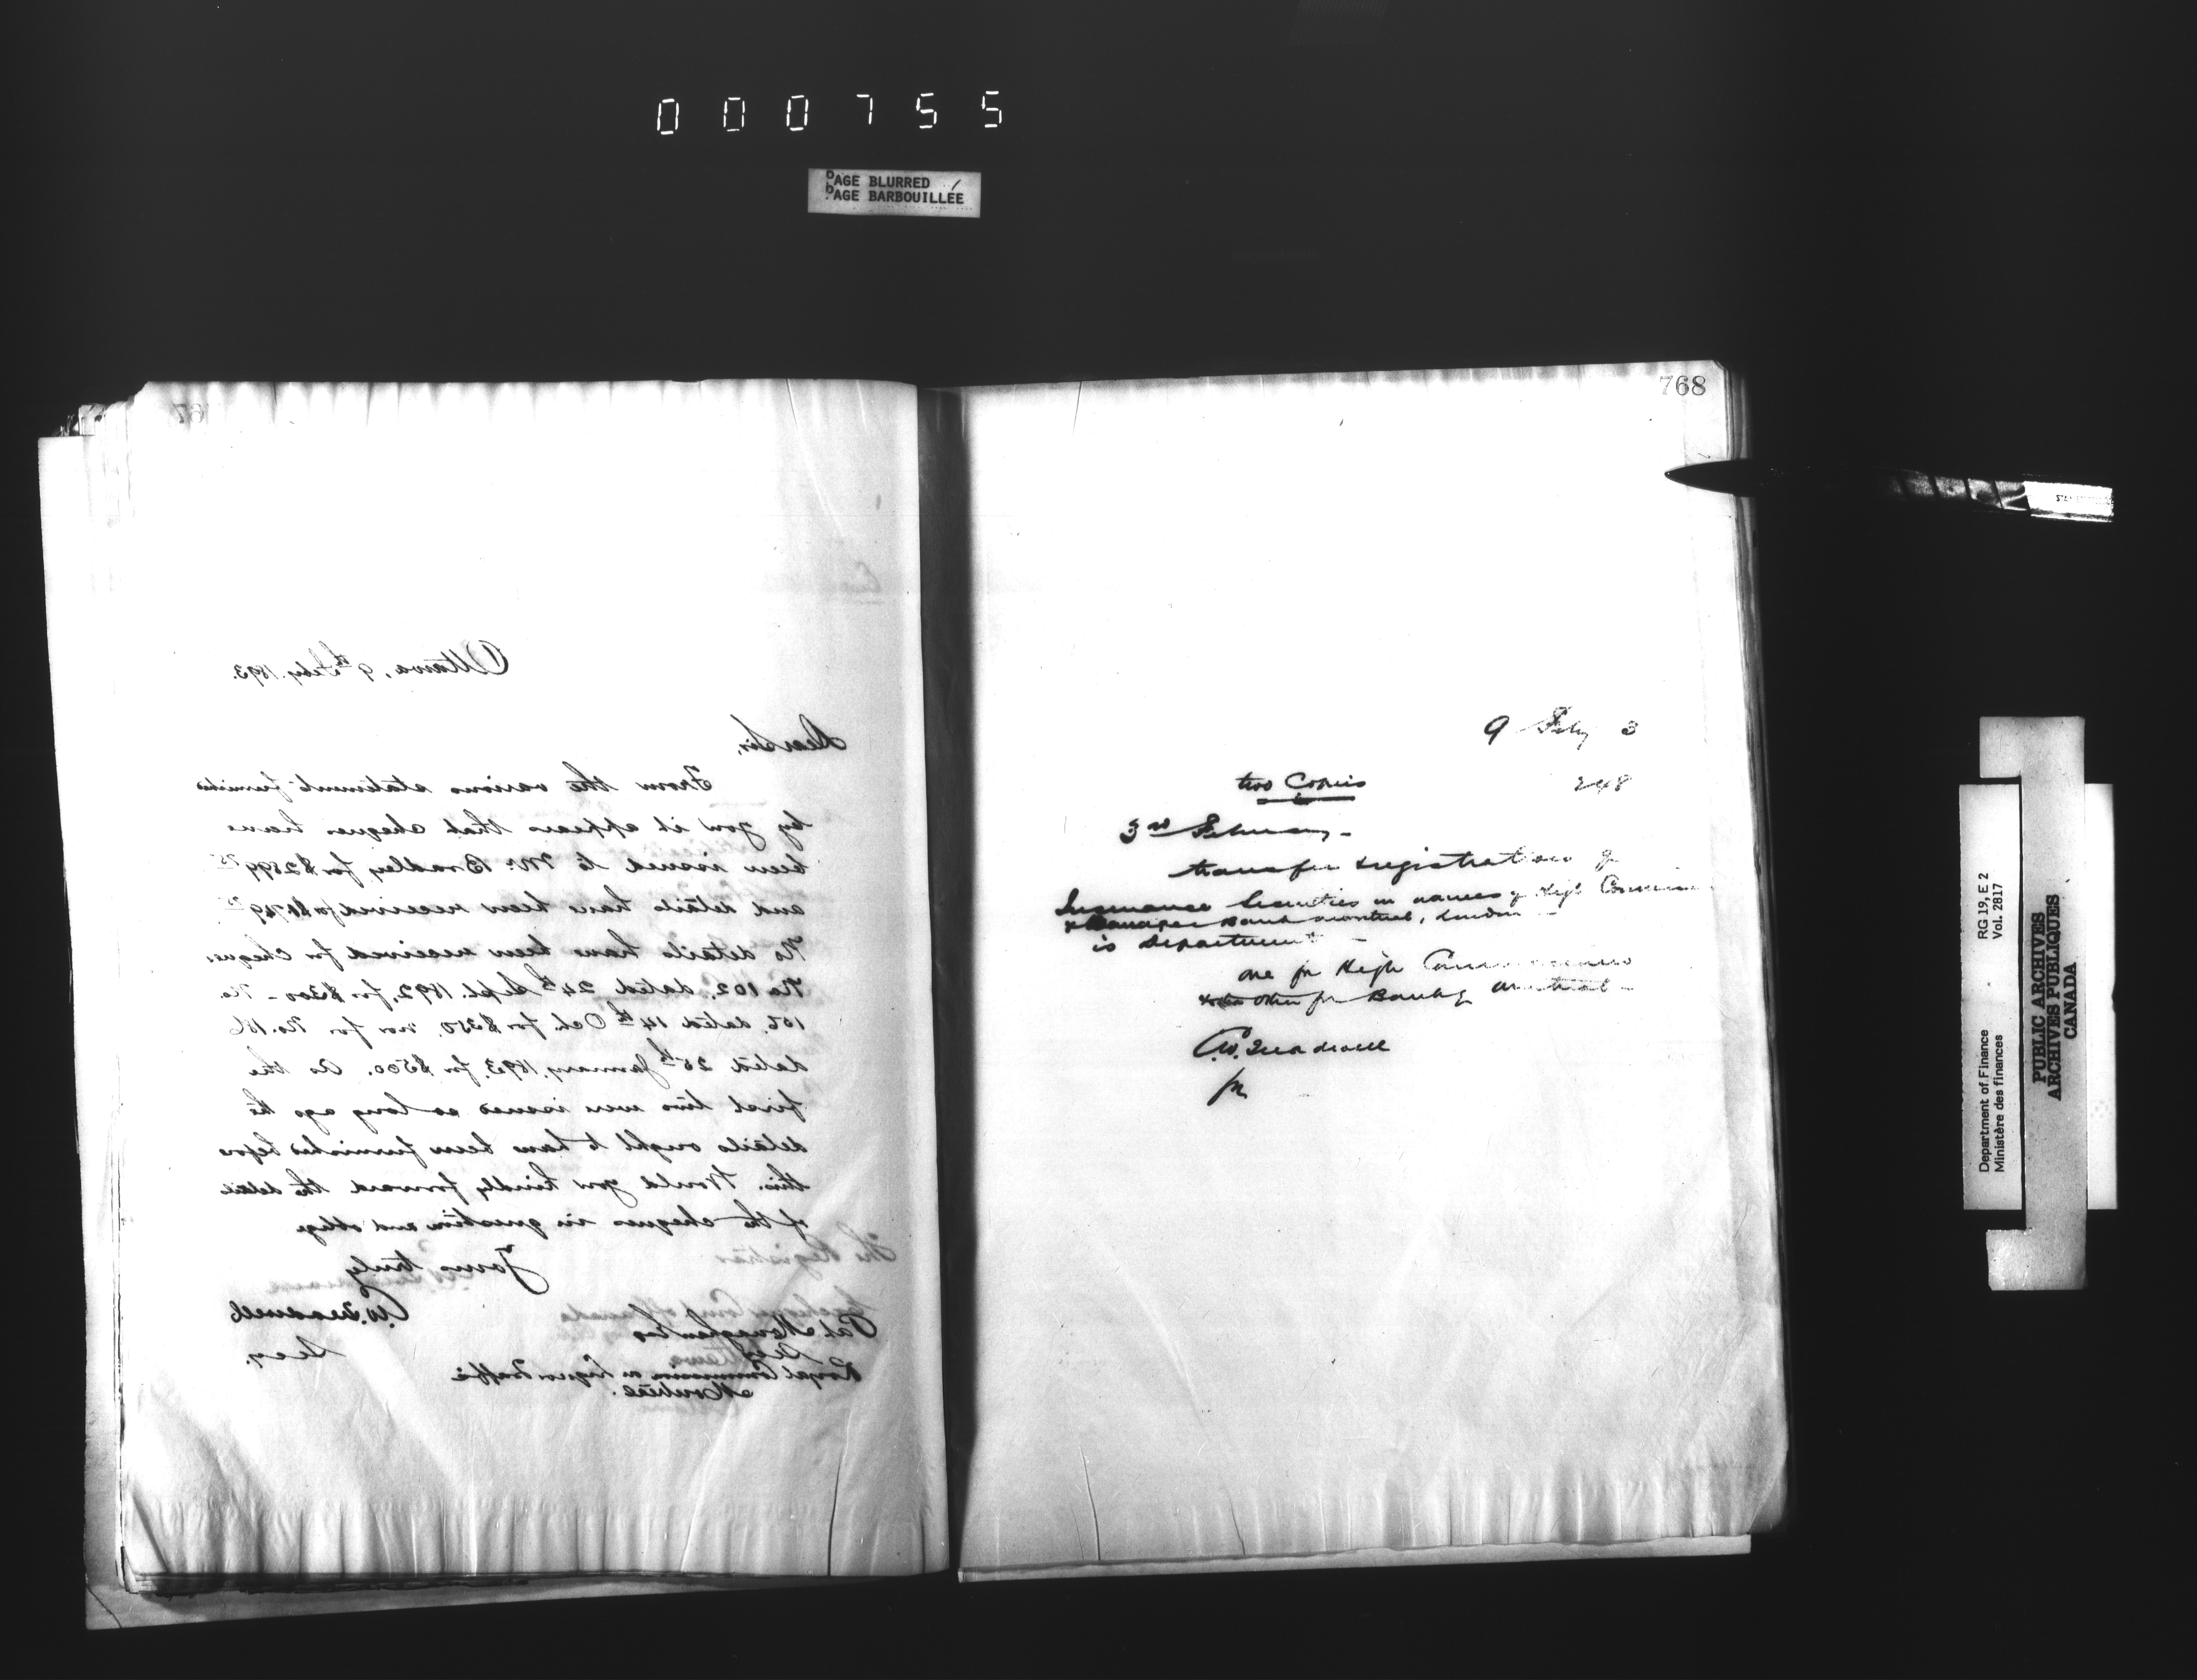 000755
PAGE BLURRED
PAGE BARBOUILLÉE
767
Ottawa, 9th Feby. 1893.
Dear Sir,
From the various statements furnished
by you it appears that cheques have
been issued to Mr. Bradley for $2899 75
and details have been received for
No details have been received for cheques
No 102, dated 24th Sept. 1892, for $300 - No.
dated 14th Oct. for $350, nor for No.
dated 28th January, 1893, for $500. As the
first two were issued so long ago the
details ought to have been furnished before
this. Would you kindly forward the details
of the cheques in question and oblige
Yours truly
The Registrar
Exchequer Court of Canada
Pat. Monaghan Esq
Secy
Ottawa
Royal Commission on Liquor Traffic
Montreal.
768
9 Feby 3
248
two Copies
3rd February -
transfer & registration of
Insurance Securities in names of High
& Manager Bank Montreal, London
is Department -
one for High
other for Bank of Montreal -
PUBLIC ARCHIVES
ARCHIVES PUBLIQUES
CANADA
Department of Finance
Ministère des finances
RG 19, E 2
Vol. 2817